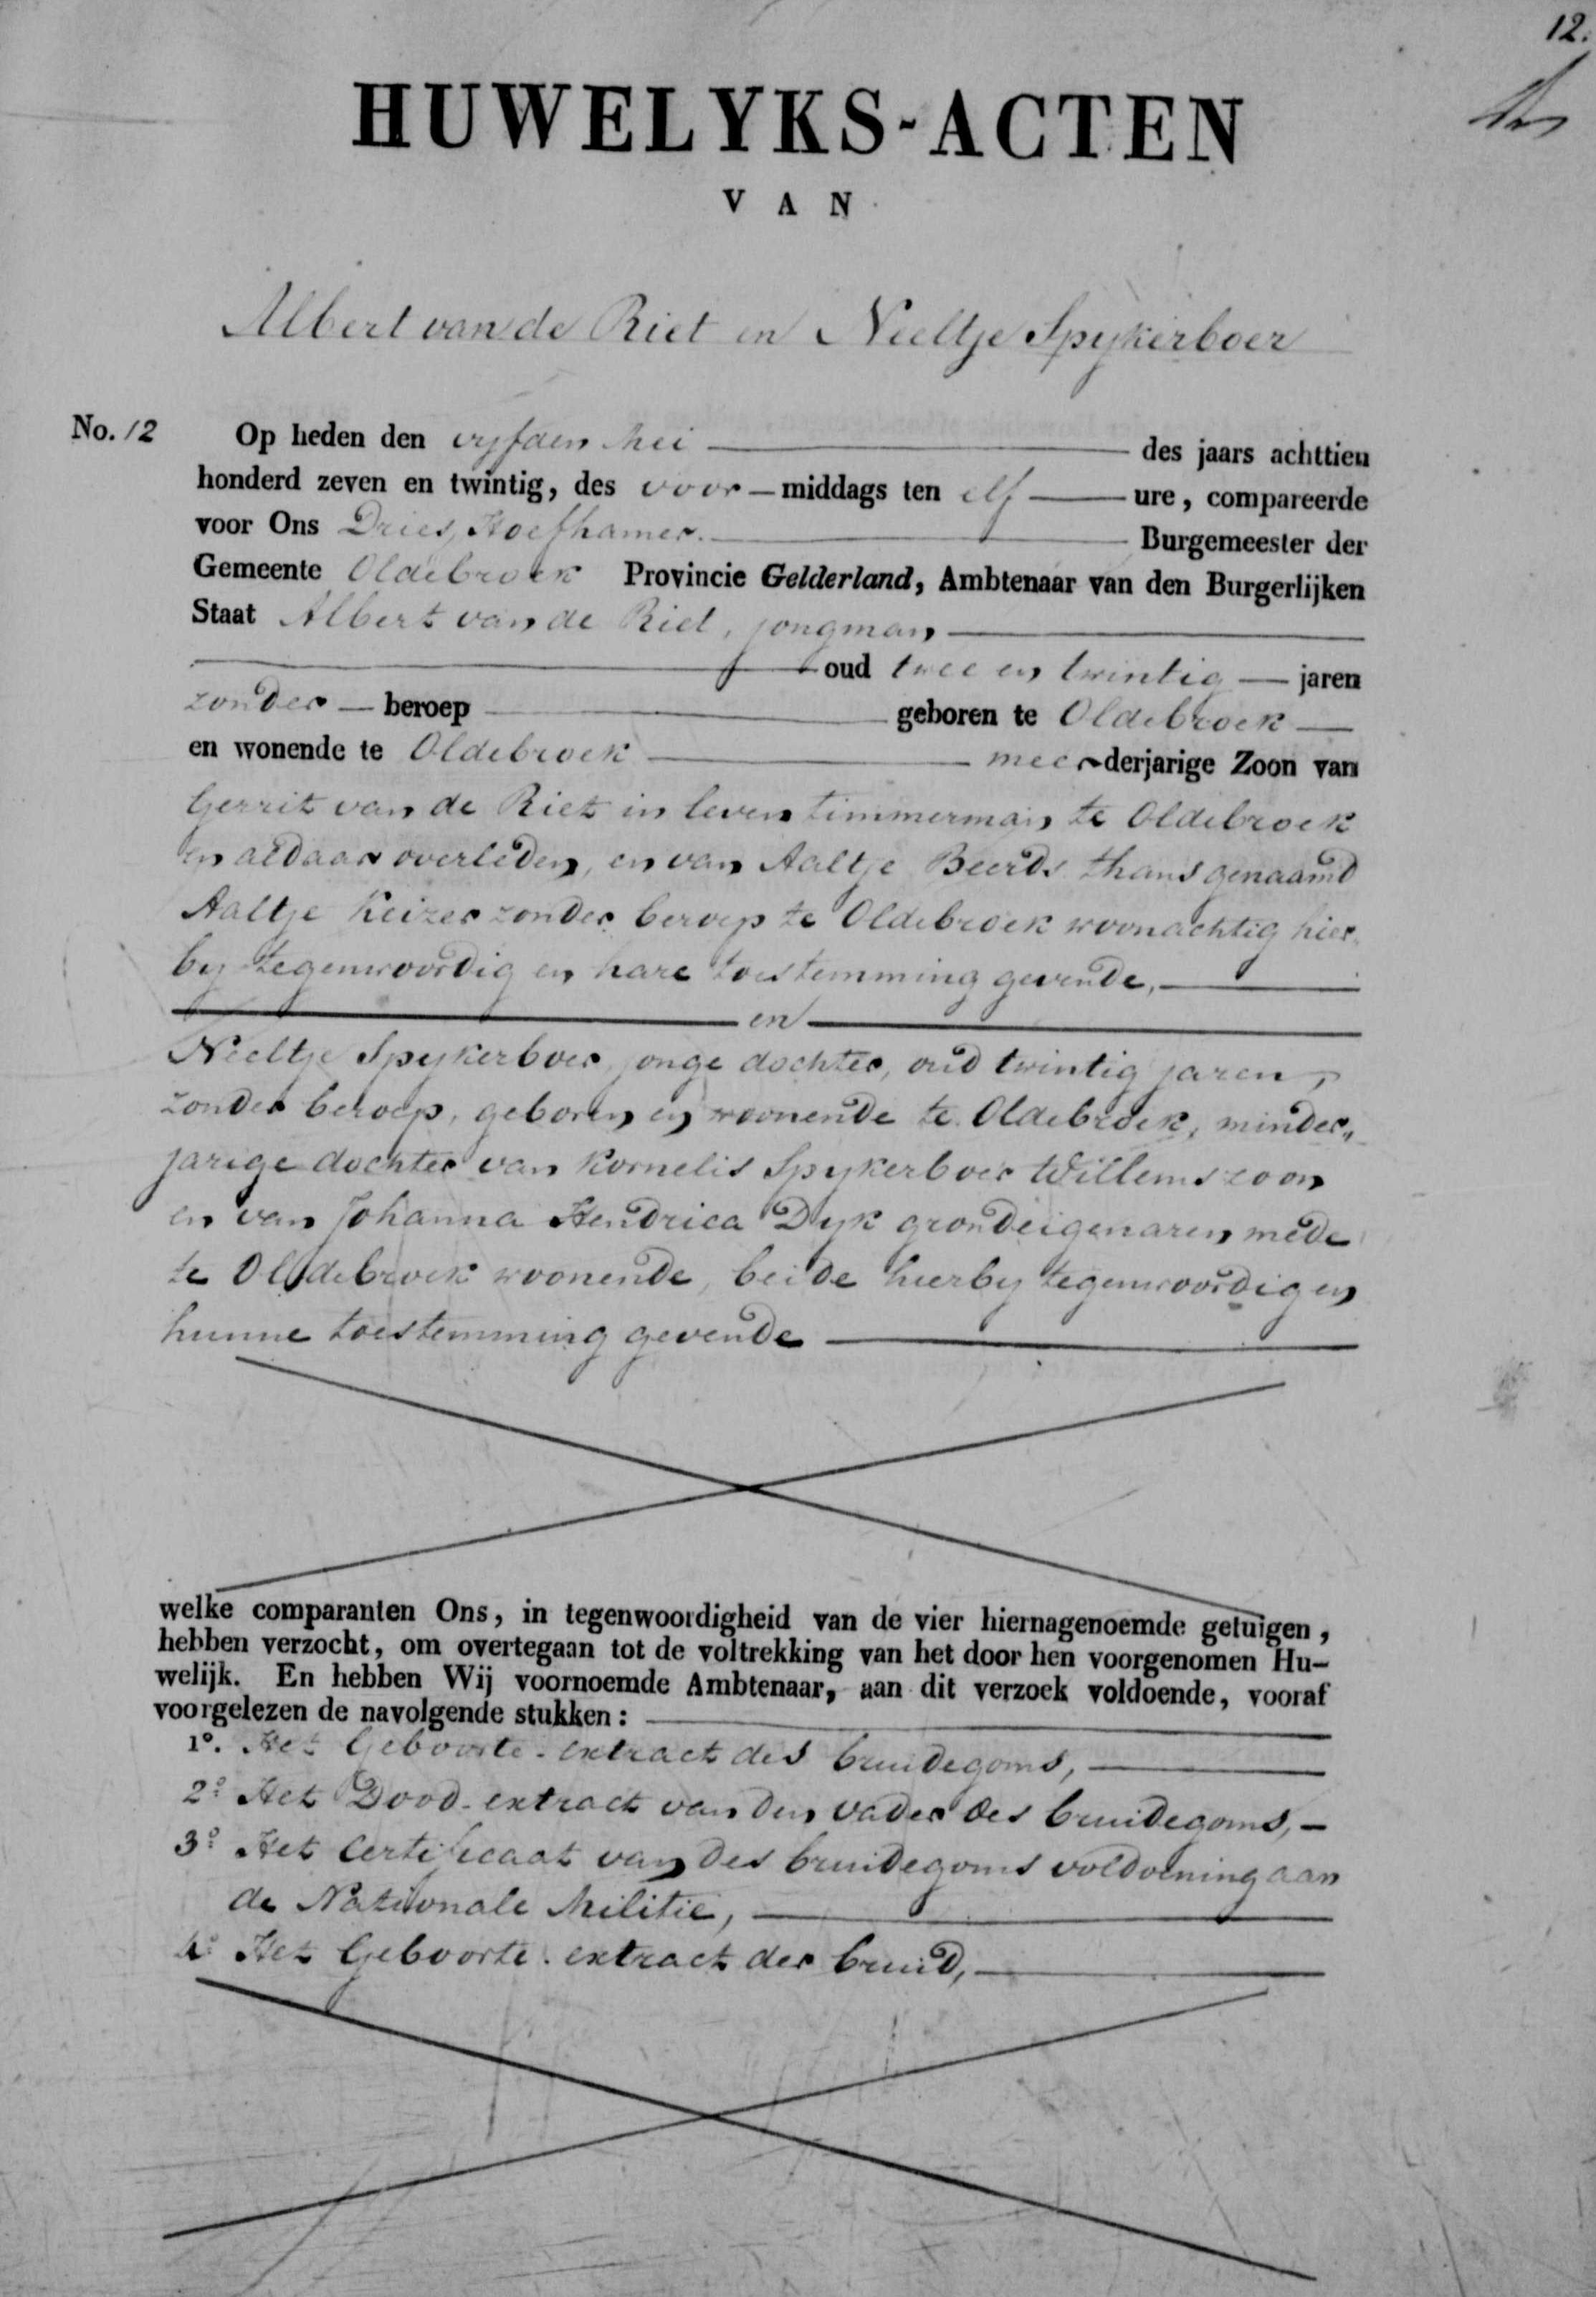 12.
HUWELYKS-ACTEN
VAN
Albert van de Riet en Neeltje Spykerboer
No. 12 Op heden den vyfden Mei des jaars achttien
honderd zeven en twintig, des voor-middags ten elf ure, compareerde
voor Ons Dries Hoefhamer. Burgemeester der
Gemeente Oldebroek Provincie Gelderland, Ambtenaar van den Burgerlijken
Staat Albert van de Riet, jongman
oud twee en twintig jaren
zonder beroep geboren te Oldebroek
en wonende te Oldebroek meerderjarige Zoon van
Gerrit van de Riet in leven timmerman te Oldebroek
en aldaar overleden, en van Aaltje Beerds thans genaamd
Aaltje Keizer zonder beroep te Oldebroek woonachtig hier
by tegenwoordig en hare toestemming gevende,
en
Neeltje Spykerboer, jonge dochter, oud twintig jaren,
zonder beroep, geboren en woonende te Oldebroek, minder,,
jarige dochter van Kornelis Spykerboer Willemszoon
en van Johanna Hendrica Dyk grondeigenaren mede
te Oldebroek woonende, beide hierby tegenwoordig en
hunne toestemming gevende
welke comparanten Ons, in tegenwoordigheid van de vier hiernagenoemde getuigen,
hebben verzocht, om overtegaan tot de voltrekking van het door hen voorgenomen Hu-
welijk. En hebben Wij voornoemde Ambtenaar, aan dit verzoek voldoende, vooraf
voorgelezen de navolgende stukken:
1°. Het Geboorte-extract des bruidegoms,
2° Het Dood-extract van den vader des bruidegoms,
3° Het Certificaat van des bruidegoms voldoening aan
de Nationale Militie,
4° Het Geboorte-extract der bruid,